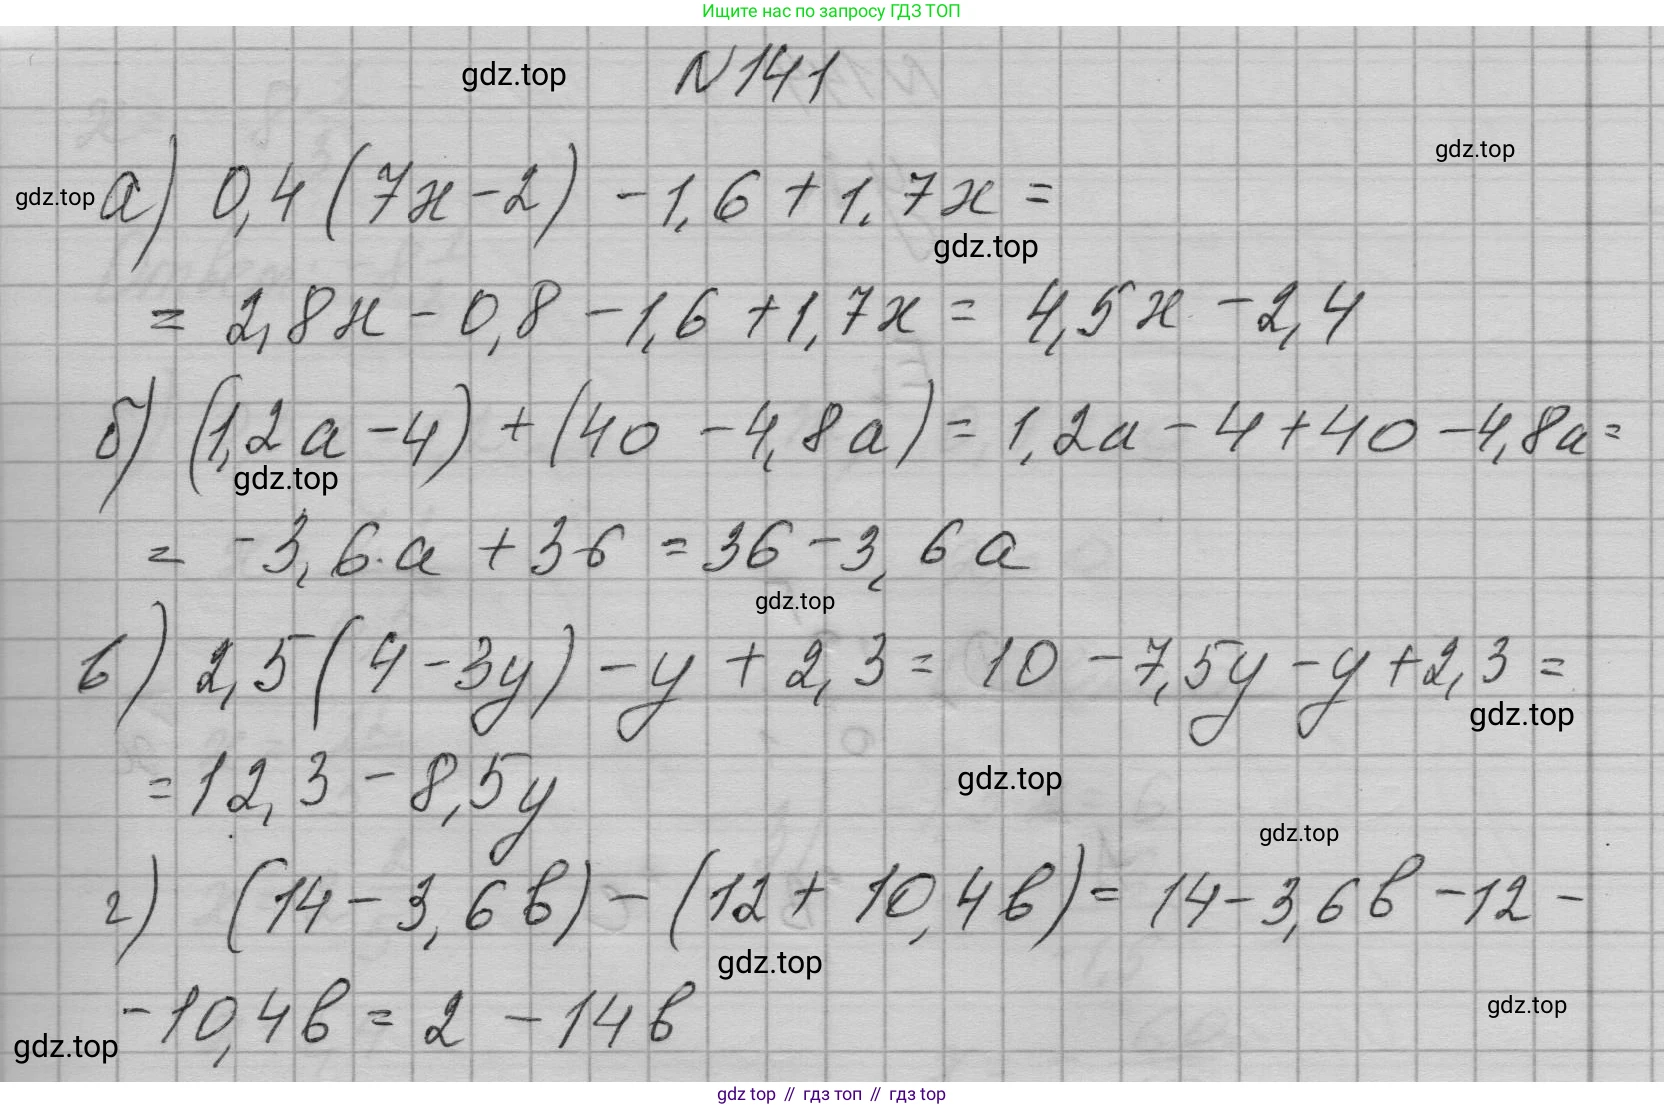 Ищите нас по запросу ГДЗ ТОП
gdz.top
N 141
gdz.top
gdz.top
а) 0,4 (7x - 2) - 1,6 + 1,7x =
gdz.top
= 2,8x - 0,8 - 1,6 + 1,7x = 4,5x - 2,4
б) (1,2a - 4) + (40 - 4,8a) = 1,2a - 4 + 40 - 4,8a =
gdz.top
= -3,6·a + 36 = 36 - 3,6a
gdz.top
в) 2,5 (4 - 3y) - y + 2,3 = 10 - 7,5y - y + 2,3 =
gdz.top
= 12,3 - 8,5y
gdz.top
gdz.top
г) (14 - 3,6в) - (12 + 10,4в) = 14 - 3,6в - 12 -
gdz.top
- 10,4в = 2 - 14в
gdz.top
gdz.top
gdz top // гдз топ // gdz top